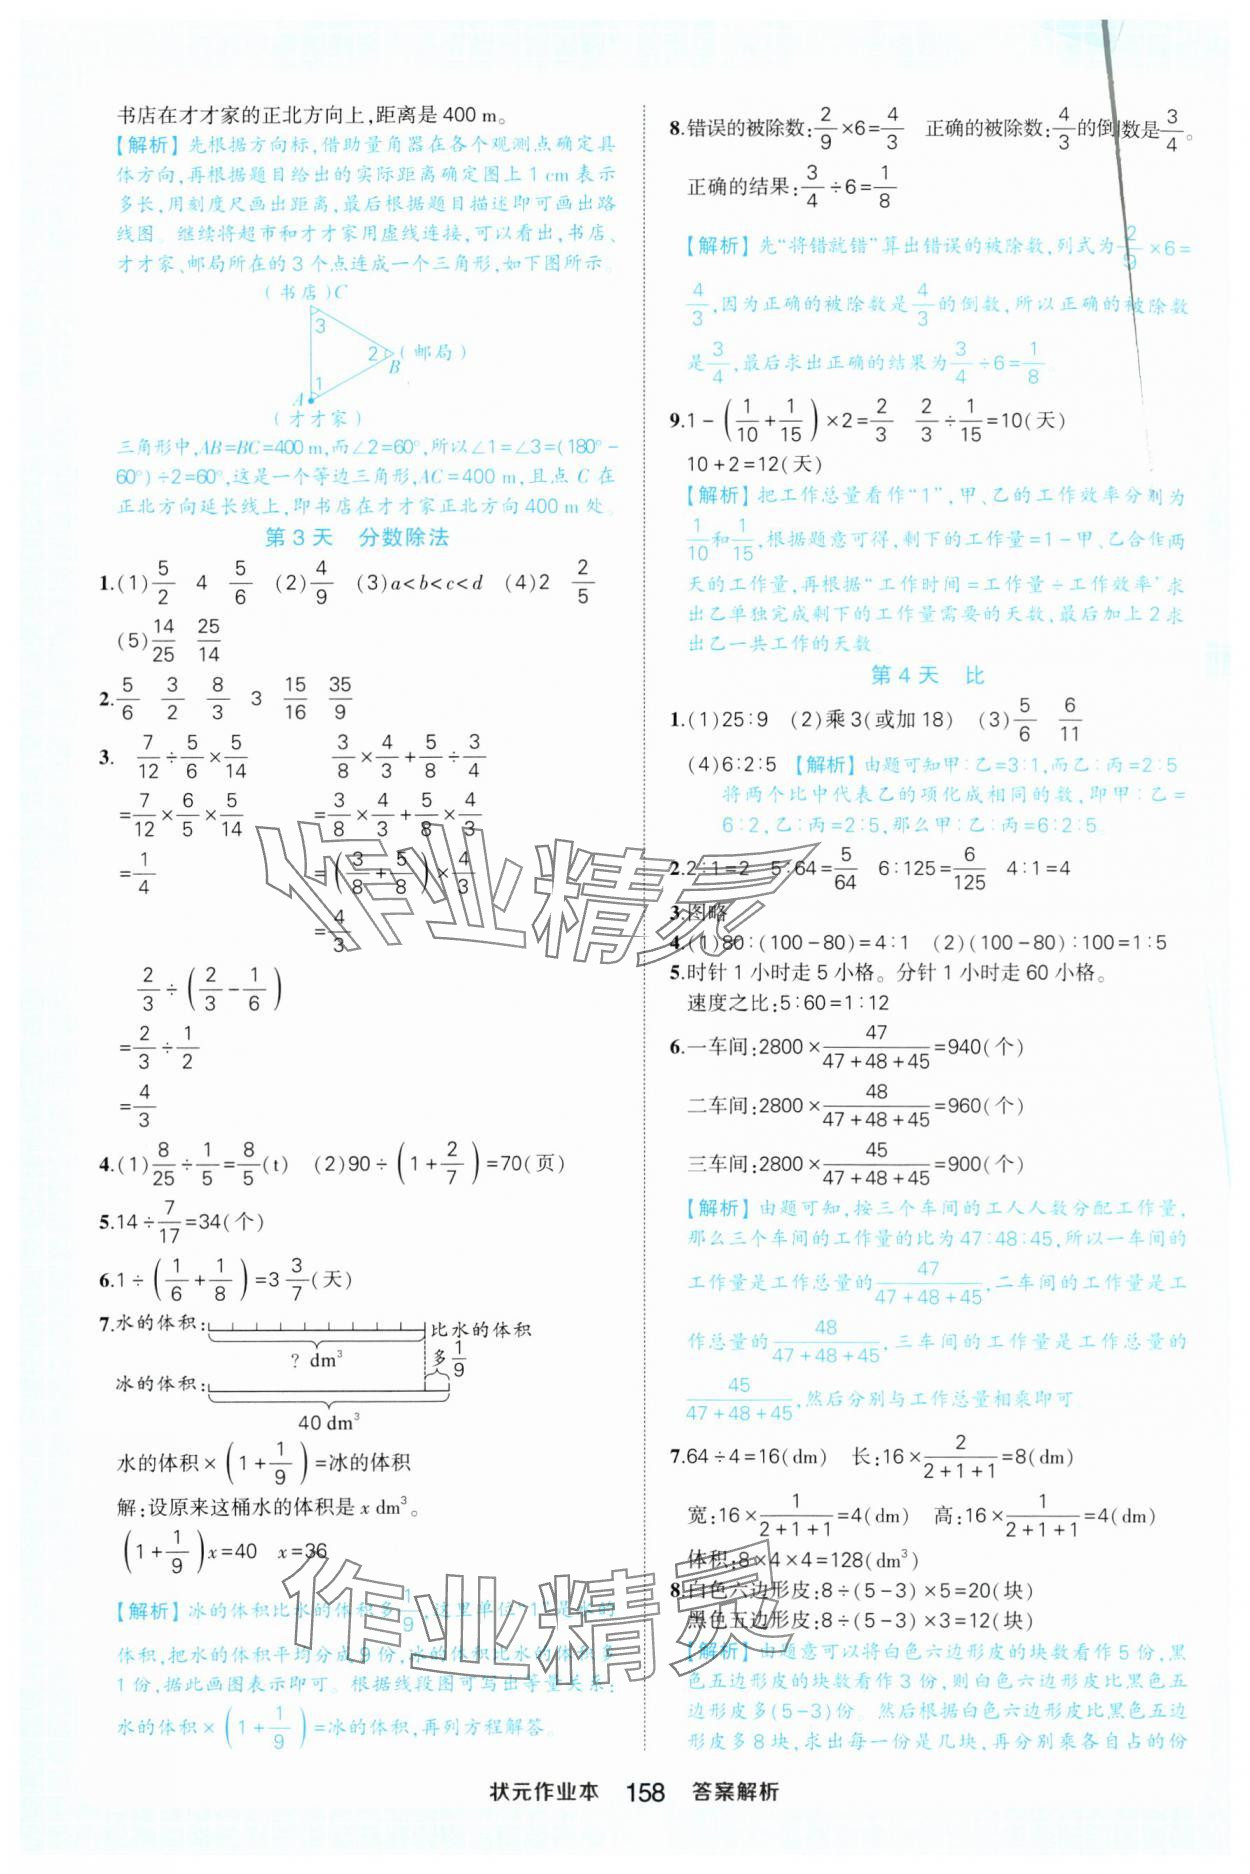 书店在才才家的正北方向上,距离是 400 m。
【解析】先根据方向标,借助量角器在各个观测点确定具
体方向,再根据题目给出的实际距离确定图上 1 cm 表示
多长,用刻度尺画出距离,最后根据题目描述即可画出路
线图。继续将超市和才才家用虚线连接,可以看出,书店、
才才家、邮局所在的 3 个点连成一个三角形,如下图所示。
(书店)C
3
2 B (邮局)
1
A
(才才家)
三角形中,AB=BC=400 m,而∠2=60°,所以∠1=∠3=(180°-
60°)÷2=60°,这是一个等边三角形,AC=400 m,且点 C 在
正北方向延长线上,即书店在才才家正北方向400 m处。
第 3 天 分数除法
1.(1)5/2 4 5/6 (2)4/9 (3)a<b<c<d (4)2 2/5
(5)14/25 25/14
2.5/6 3/2 8/3 3 15/16 35/9
3. 7/12÷5/6×5/14 3/8×4/3+5/8÷3/4
=7/12×6/5×5/14 =3/8×4/3+5/8×4/3
=1/4 =(3/8+5/8)×4/3
=4/3
2/3÷(2/3-1/6)
=2/3÷1/2
=4/3
4.(1)8/25÷1/5=8/5(t) (2)90÷(1+2/7)=70(页)
5.14÷7/17=34(个)
6.1÷(1/6+1/8)=3 3/7(天)
7.水的体积: 比水的体积
? dm³ 多1/9
冰的体积:
40 dm³
水的体积×(1+1/9)=冰的体积
解:设原来这桶水的体积是 x dm³。
(1+1/9)x=40 x=36
【解析】冰的体积比水的体积多1/9,这里单位“1”是水的
体积,把水的体积平均分成 9 份,冰的体积比水的体积多
1 份,据此画图表示即可。根据线段图可写出等量关系:
水的体积×(1+1/9)=冰的体积,再列方程解答。
8.错误的被除数:2/9×6=4/3 正确的被除数:4/3的倒数是3/4。
正确的结果:3/4÷6=1/8
【解析】先“将错就错”算出错误的被除数,列式为2/9×6=
4/3,因为正确的被除数是4/3的倒数,所以正确的被除数
是3/4,最后求出正确的结果为3/4÷6=1/8。
9.1-(1/10+1/15)×2=2/3 2/3÷1/15=10(天)
10+2=12(天)
【解析】把工作总量看作“1”,甲、乙的工作效率分别为
1/10和1/15,根据题意可得,剩下的工作量=1-甲、乙合作两
天的工作量,再根据“工作时间=工作量÷工作效率”求
出乙单独完成剩下的工作量需要的天数,最后加上 2 求
出乙一共工作的天数。
第 4 天 比
1.(1)25:9 (2)乘3(或加18) (3)5/6 6/11
(4)6:2:5 【解析】由题可知甲:乙=3:1,而乙:丙=2:5
将两个比中代表乙的项化成相同的数,即甲:乙=
6:2,乙:丙=2:5,那么甲:乙:丙=6:2:5。
2.2:1=2 5:64=5/64 6:125=6/125 4:1=4
3.图略
4.(1)80:(100-80)=4:1 (2)(100-80):100=1:5
5.时针 1 小时走 5 小格。分针 1 小时走 60 小格。
速度之比:5:60=1:12
6.一车间:2800×47/(47+48+45)=940(个)
二车间:2800×48/(47+48+45)=960(个)
三车间:2800×45/(47+48+45)=900(个)
【解析】由题可知,按三个车间的工人人数分配工作量,
那么三个车间的工作量的比为 47:48:45,所以一车间的
工作量是工作总量的47/(47+48+45),二车间的工作量是工
作总量的48/(47+48+45),三车间的工作量是工作总量的
45/(47+48+45),然后分别与工作总量相乘即可。
7.64÷4=16(dm) 长:16×2/(2+1+1)=8(dm)
宽:16×1/(2+1+1)=4(dm) 高:16×1/(2+1+1)=4(dm)
体积:8×4×4=128(dm³)
8.白色六边形皮:8÷(5-3)×5=20(块)
黑色五边形皮:8÷(5-3)×3=12(块)
【解析】由题意可以将白色六边形皮的块数看作 5 份,黑
色五边形皮的块数看作 3 份,则白色六边形皮比黑色五
边形皮多(5-3)份。然后根据白色六边形皮比黑色五边
形皮多8块,求出每一份是几块,再分别乘各自占的份
状元作业本 158 答案解析
作业精灵
作业精灵